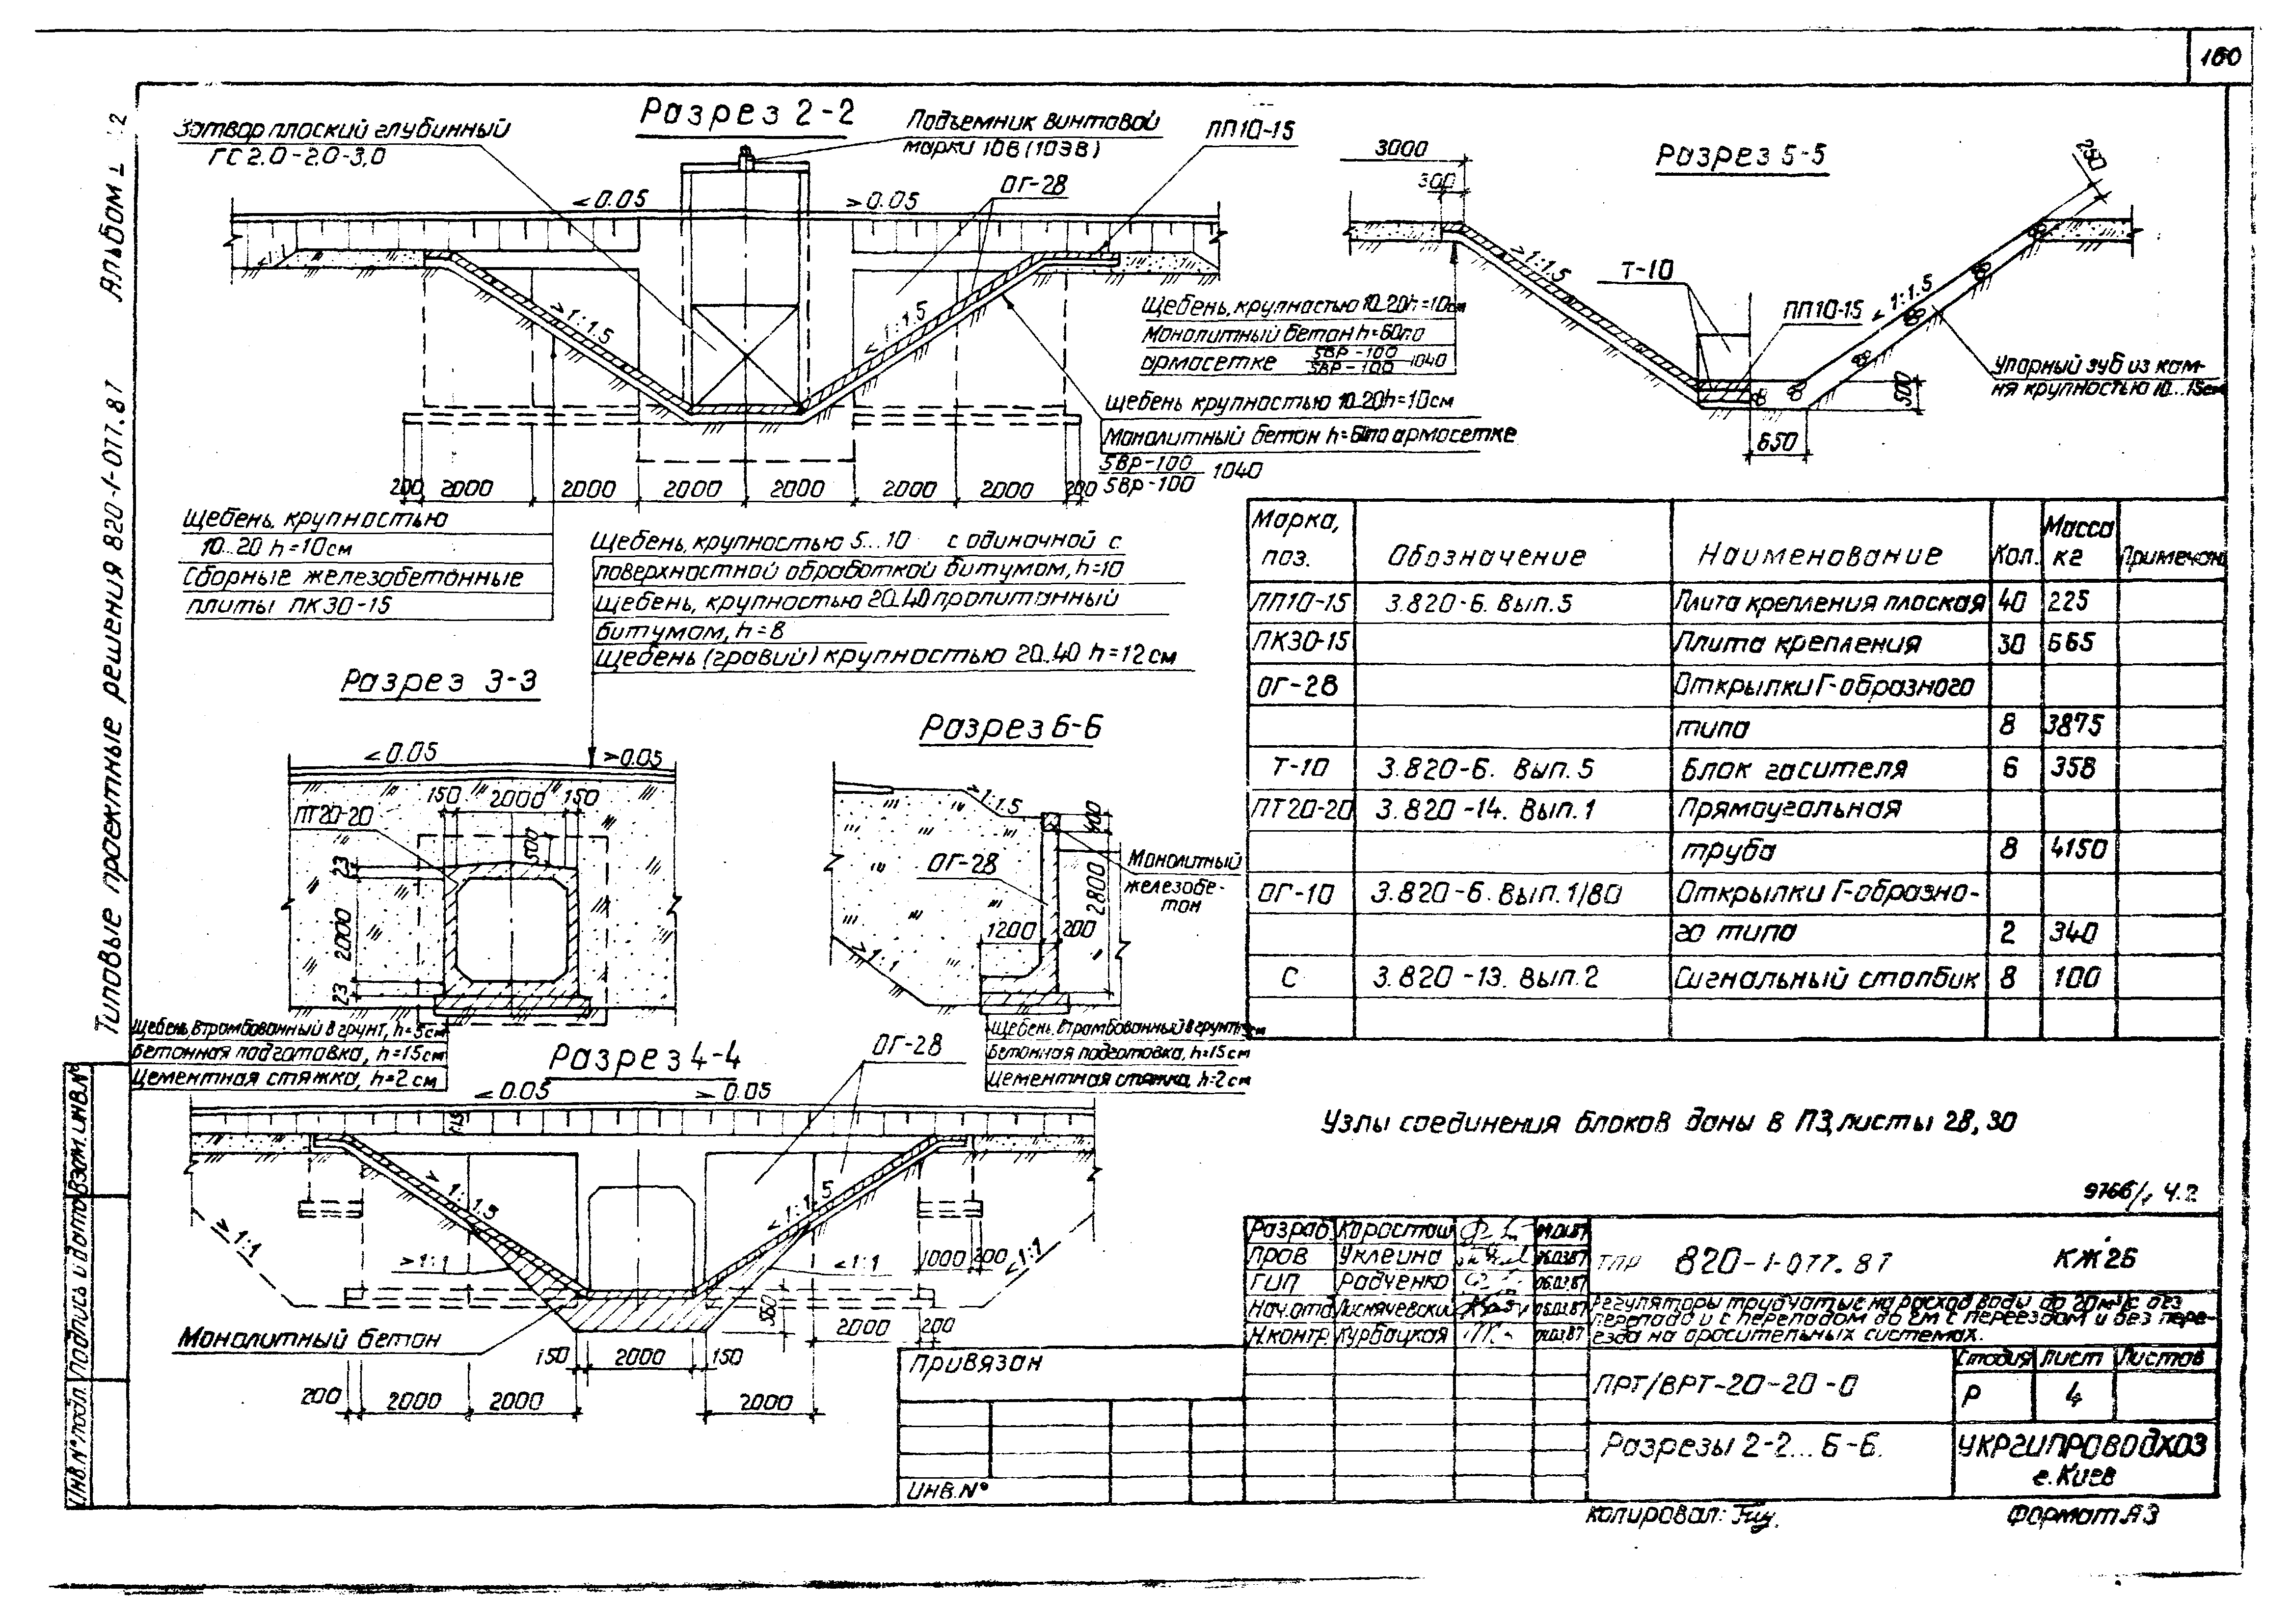 160
Альбом 1
Типовые проектные решения 820-1-077.87
Разрез 2-2
Затвор плоский глубинный
ГС 2.0-2.0-3,0
Подъемник винтовой
марки 10В (10ЭВ)
ПП10-15
ОГ-28
< 0.05
> 0.05
> 1:1.5
< 1:1.5
Щебень, крупностью 10..20 h=10см
Монолитный бетон h=6 по
армосетке 5Вр-100/5Вр-100 1040
Щебень крупностью 10..20 h=10см
Монолитный бетон h=6 по армосетке
5Вр-100/5Вр-100 1040
200 2000 2000 2000 2000 2000 2000 200
Щебень, крупностью
10...20 h=10см
Сборные железобетонные
плиты ПК30-15
Щебень, крупностью 5...10 с одиночной с
поверхностной обработкой битумом, h=10
Щебень, крупностью 20..40 пропитанный
битумом, h=8
Щебень (гравий) крупностью 20..40 h=12см
Разрез 5-5
3000
300
250
> 1:1.5
Т-10
ПП10-15
< 1:1.5
500
650
Упорный зуб из кам-
ня крупностью 10...15см
Разрез 3-3
< 0.05
> 0.05
150 2000 150
ПТ20-20
500
23
2000
23
Щебень, втрамбованный в грунт, h=5см
Бетонная подготовка, h=15см
Цементная стяжка, h=2см
Разрез 6-6
> 1:1.5
400
ОГ-28
Монолитный
железобе-
тон
2800
1200 200
> 1:1
Щебень, втрамбованный в грунт
Бетонная подготовка, h=15см
Цементная стяжка, h=2см
Разрез 4-4
ОГ-28
< 0.05
> 0.05
1:1.5
> 1:1.5
< 1:1.5
> 1:1
> 1:1
< 1:1
< 1:1
1000 200
500
2000 200
Монолитный бетон
150 2000 150
200 2000 2000 2000
Марка, поз. Обозначение Наименование Кол. Масса кг Примечан
ПП10-15 3.820-6. Вып.5 Плита крепления плоская 40 225
ПК30-15 Плита крепления 30 665
ОГ-28 Открылки Г-образного
типа 8 3875
Т-10 3.820-6. Вып.5 Блок гасителя 6 358
ПТ20-20 3.820-14. Вып.1 Прямоугольная
труба 8 4150
ОГ-10 3.820-6. Вып.1/80 Открылки Г-образно-
го типа 2 340
С 3.820-13. Вып.2 Сигнальный столбик 8 100
Узлы соединения блоков даны в ПЗ, листы 28, 30
9766/1 Ч.2
Разраб.
Пров Уклеина 06.03.87
ГИП Радченко 06.03.87
Нач.отд 06.03.87
Н.контр. Курбацкая
ТПР 820-1-077.87 КЖ 26
Регуляторы трубчатые на расход воды до 20м³/с без
перепада и с перепадом до 2м с переездом и без пере-
езда на оросительных системах.
Привязан
Инв.№
ПРТ/ВРТ-20-20-0
Стадия Лист Листов
Р 4
Разрезы 2-2...6-6.
УКРГИПРОВОДХОЗ
г.Киев
Копировал:
Формат А3
Инв.№подл. Подпись и дата Взам.инв.№